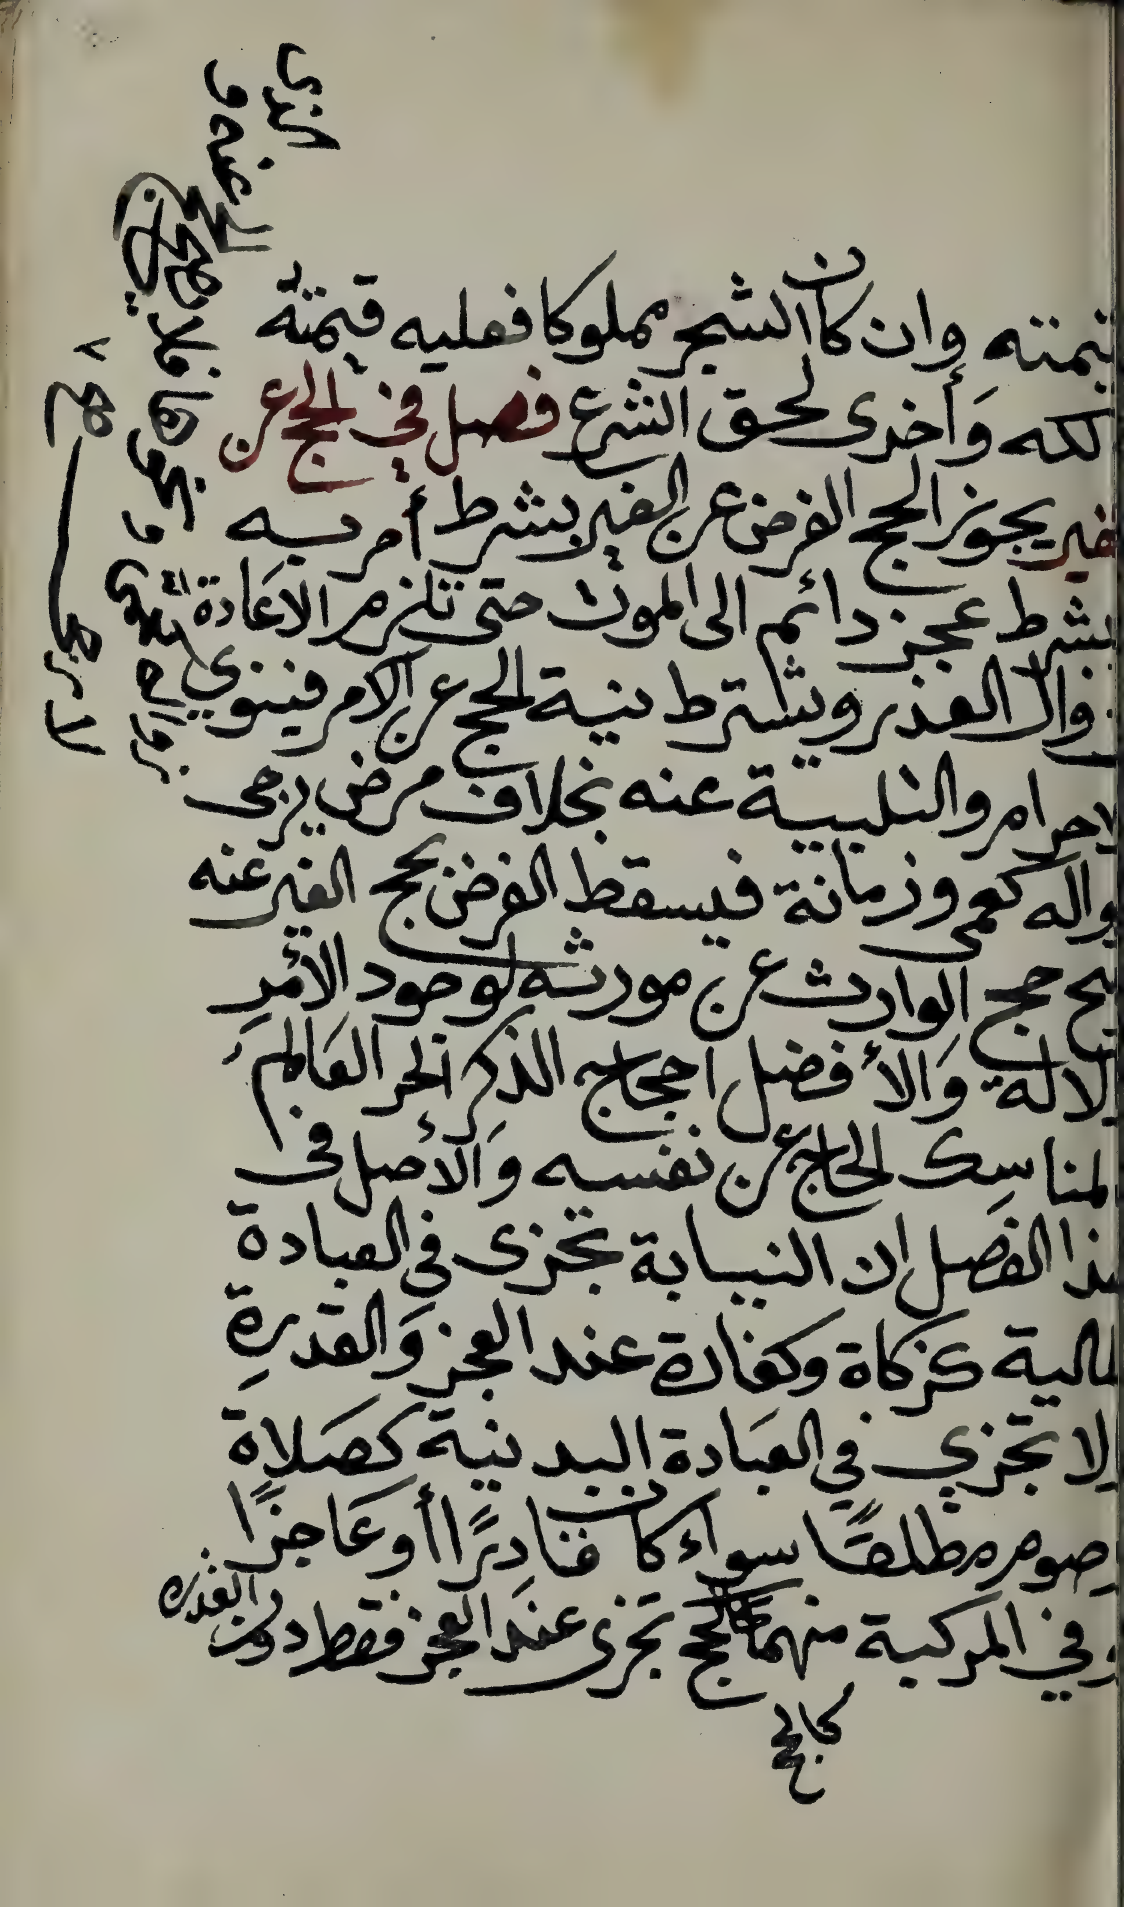 قيمته وان كان الشجر مملوكا فعليه قيمتهُ
لكه وَأخرى لحق الشرع فصل في الحج عن
الغير يجوز الحج الفرض عن الغير بشرط أمر به
بشرط عجز دائم الى الموت حتى تلزم الاعَادة
زوال العذر ويشترط نية الحج عن الآمر فينوي
لاحرام والتلبية عنه بخلاف مرض يرجى
زواله كعمى وزمانة فيسقط الفرض بحج الغير عنه
يصح حج الوارث عن مورثه لوجود الأمرِ
لالة وَالأفضل احجاج الذكرِ الحر العَالم
لمناسِك الحاج عن نفسه وَالأصل فى
هذا الفصل ان النيابة تجزى فى العبادة
المالية كزكاة وكفارة عند العجز وَالقدرةِ
لا تجزي في العبَادة البدنية كصَلاة
وصوم مطلقًا سواء كان قادِرًا أو عَاجزًا
وفي المركبة منهما كالحج تجزى عند العجز فقط دون القدره
كالحج
الذى
عنه و
الحج
فلا يصح